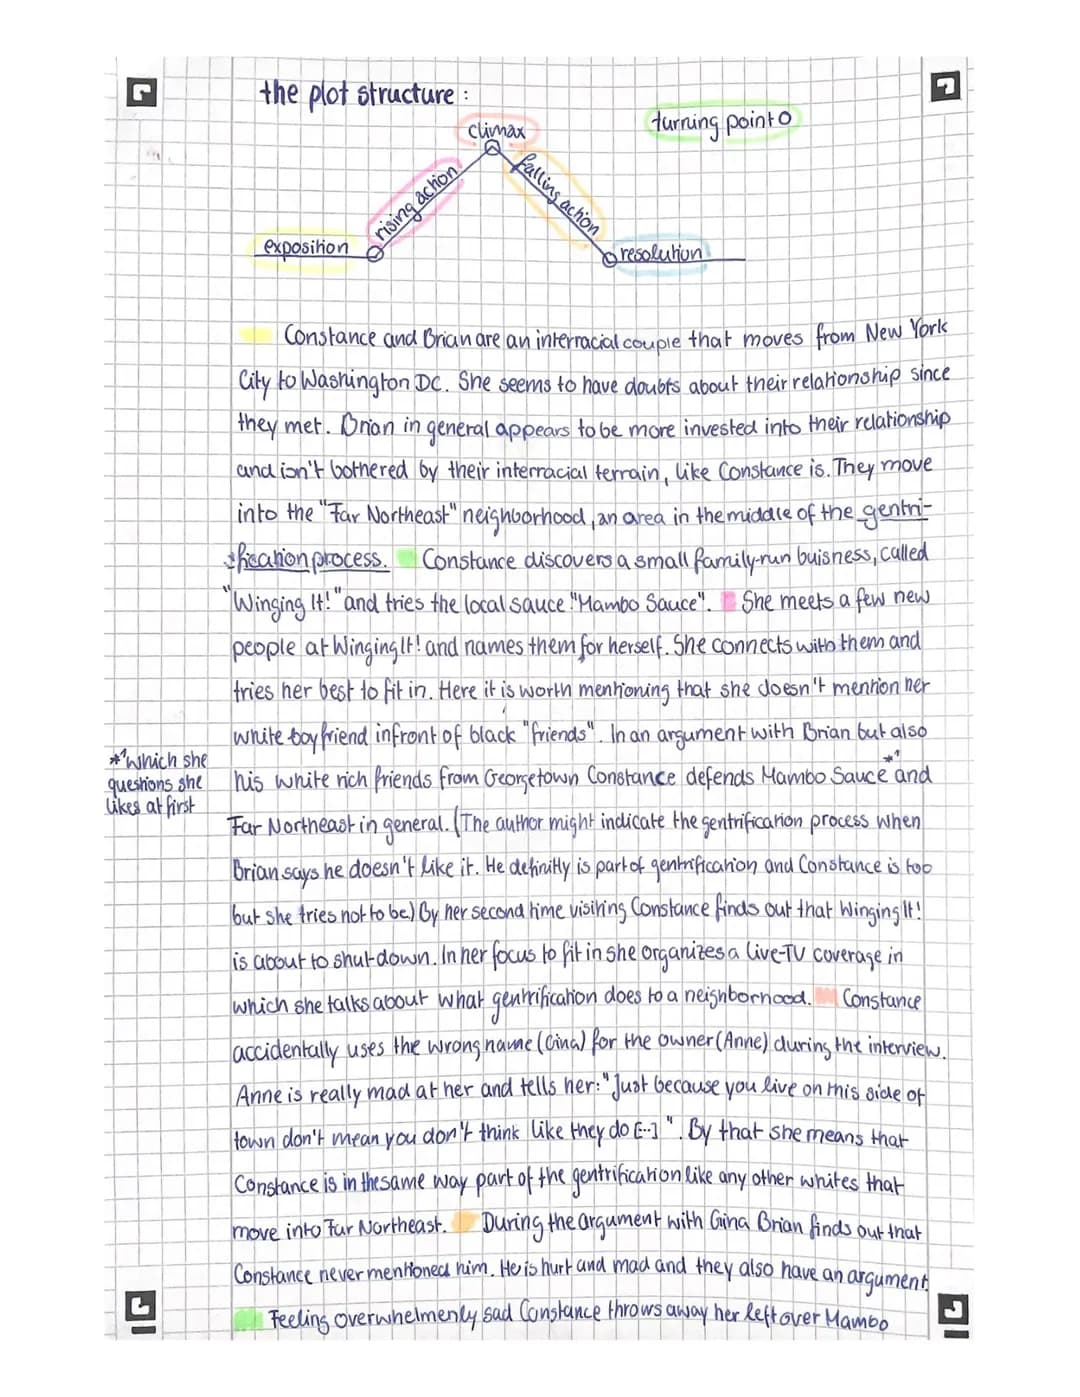 the plot structure :
climax
turning point O
rising action
falling action
exposition
resolution
Constance and Brian are an interracial couple that moves from New York
City to Washington DC. She seems to have doubts about their relationship since
they met. Brian in general appears to be more invested into their relationship
and isn't bothered by their interracial terrain, like Constance is. They move
into the "Far Northeast" neighborhood, an area in the middle of the gentri-
fication process. Constance discovers a small family-run buisness, called
"Winging It!" and tries the local sauce "Mambo Sauce". She meets a few new
people at Winging It! and names them for herself. She connects with them and
tries her best to fit in. Here it is worth mentioning that she doesn't mention her
white boyfriend infront of black "friends". In an argument with Brian but also
*¹which she
questions she
likes at first
his white rich friends from Georgetown Constance defends Mambo Sauce *¹ and
Far Northeast in general. (The author might indicate the gentrification process when
Brian says he doesn't like it. He definitly is part of gentrification and Constance is too
but she tries not to be.) By her second time visiting Constance finds out that Winging It!
is about to shut down. In her focus to fit in she organizes a live-TV coverage in
which she talks about what gentrification does to a neighborhood. Constance
accidentally uses the wrong name (Gina) for the owner (Anne) during the interview.
Anne is really mad at her and tells her: "Just because you live on this side of
town don't mean you don't think like they do [...]". By that she means that
Constance is in the same way part of the gentrification like any other whites that
move into Far Northeast. During the argument with Gina Brian finds out that
Constance never mentioned him. He is hurt and mad and they also have an argument.
Feeling overwhelmenly sad Constance throws away her leftover Mambo